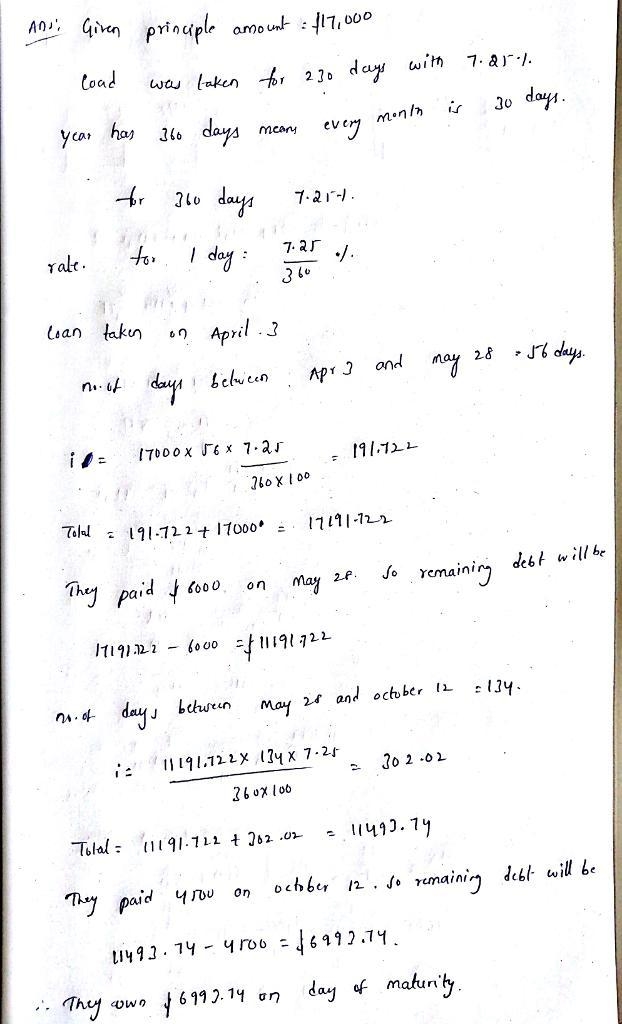 Ans: Given principle amount : $17,000
load was taken for 230 days with 7.25%.
year has 360 days means every month is 30 days.
for 360 days 7.25%.
rate. for 1 day : 7.25/360 %.
loan taken on April 3
no. of days between Apr 3 and may 28 = 56 days.
i = 17000 x 56 x 7.25 / 360 x 100 = 191.722
Total = 191.722 + 17000 = 17191.722
They paid $ 6000 on may 28. So remaining debt will be
17191.722 - 6000 = $ 11191.722
no. of days between may 28 and october 12 = 134.
i = 11191.722 x 134 x 7.25 / 360x100 = 302.02
Total = 11191.722 + 302.02 = 11493.74
They paid 4500 on october 12. So remaining debt will be
11493.74 - 4500 = $6993.74.
∴ They own $ 6993.74 on day of maturity.